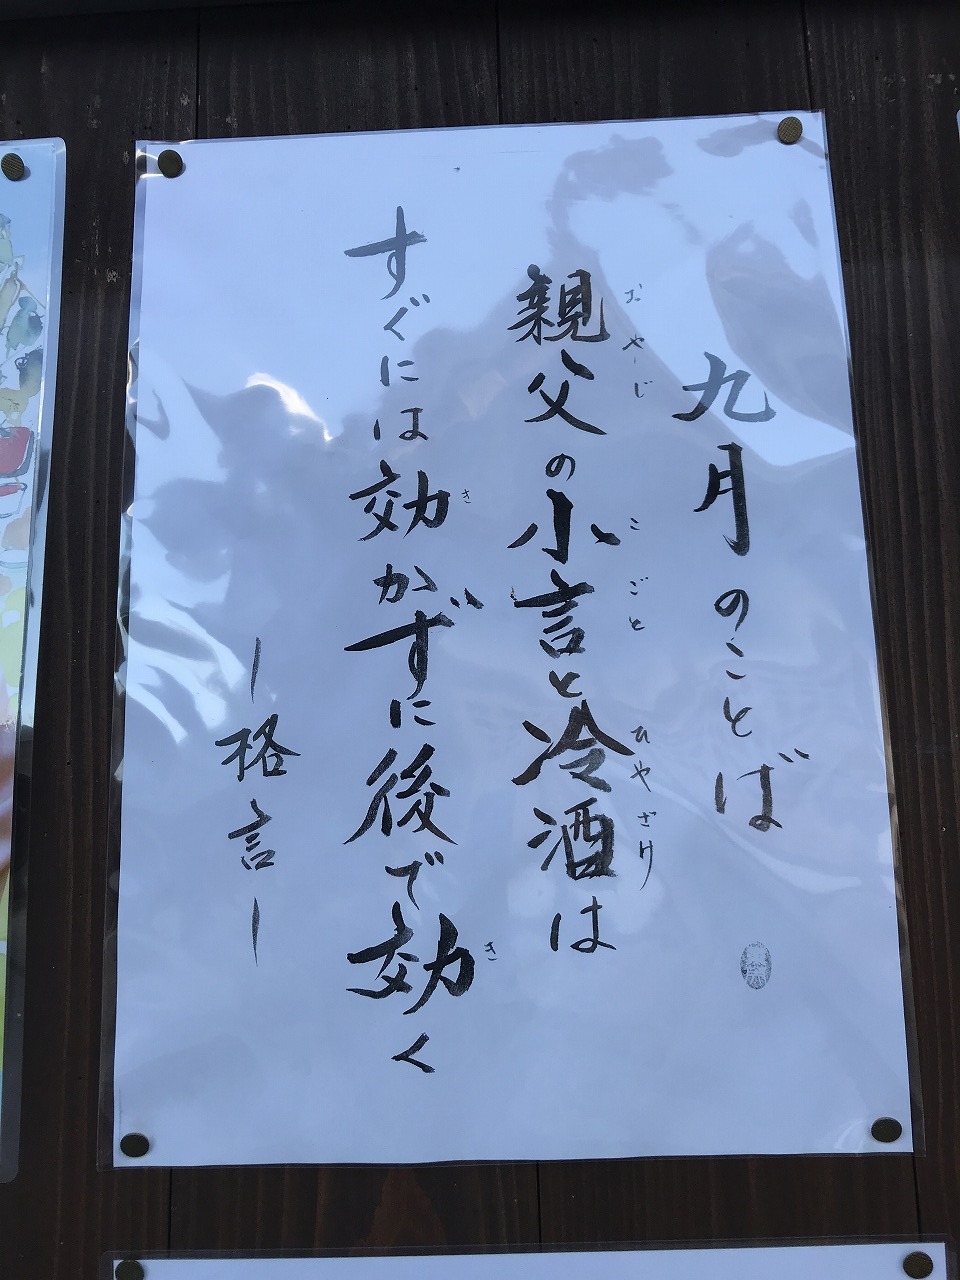 九月のことば
親父の小言と冷酒は
おやじ
こごと
ひやざけ
すぐには効かずに後で効く
き
き
ー格言ー